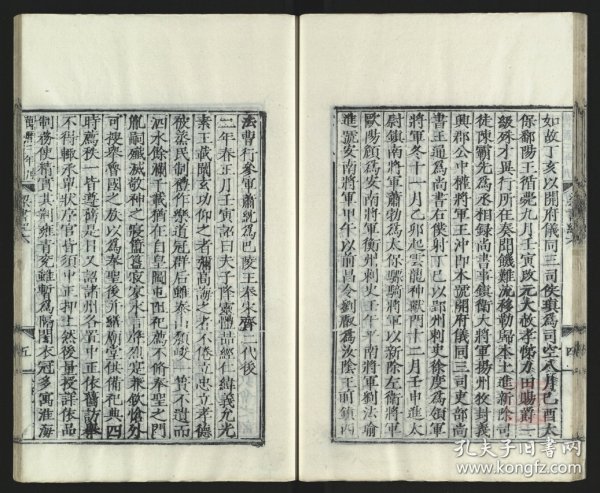 如故丁亥以開府儀同三司侯瑱爲司空八月己酉太
保鄱陽王循薨九月壬寅改元大赦孝悌力田賜爵一
級殊才異行所在奏聞饑難流移勒歸本土進新除司
徒陳霸先爲丞相錄尚書事鎮衛大將軍揚州牧封義
興郡公中權將軍王沖即本號開府儀同三司吏部尚
書王通爲尚書右僕射丁巳以郢州刺史徐度爲領軍
將軍冬十一月乙卯起雲龍神獸門十二月壬申進太
尉鎮南將軍蕭勃爲太保驃騎將軍以新除左衛將軍
歐陽頠爲安南將軍衡州刺史壬午平南將軍劉法瑜
進號安南將軍甲午以前昌令劉叡爲汝陰王前鎮西
四
法曹行參軍蕭紞爲巴陵王奉宋齊二代後
二年春正月壬寅詔曰夫子降靈體喆經仁緯義允光
素王載闡玄功仰之者彌高誨之者不倦立忠立孝德
被蒸民制禮作樂道冠群后雖泰山頹峻一簣不遺而
泗水餘瀾千載猶在自皇圖屯阻祀薦不修奉聖之門
胤嗣殲滅敬神之寢簠簋寂寥永言聲烈寔兼欽愴外
可搜舉魯國之族以爲奉聖後并繕廟堂供備祀典四
時薦秩一皆遵舊是日又詔諸州各置中正依舊訪舉
不得輒承單狀序官皆須中正押上然後量授詳依品
制務使精實其荊雍青兗雖暫爲隔閡衣冠多寓淮海
五
孔夫子旧书网
www.kongfz.com